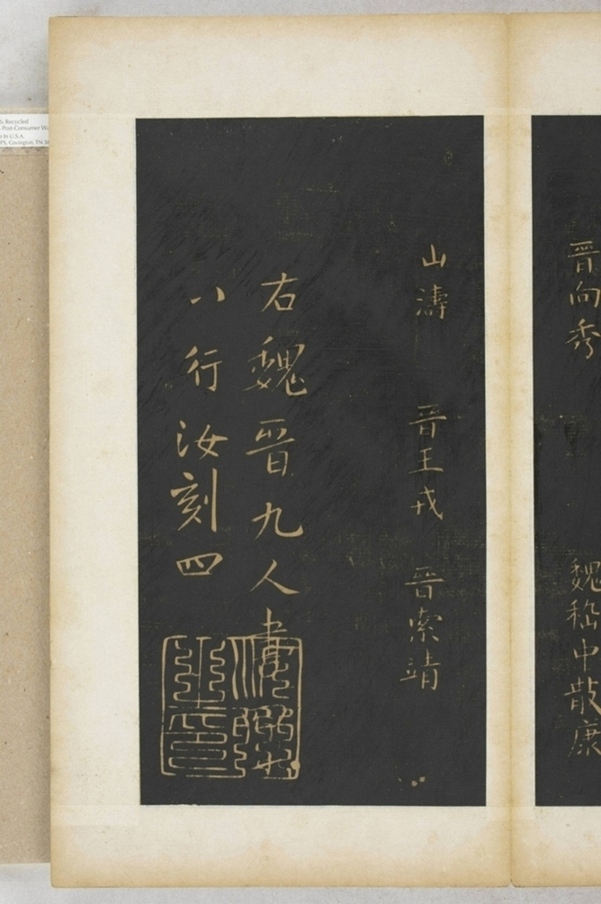 晉向秀 魏嵇中散康
山濤 晉王戎 晉索靖
右魏晉九人書
八行汝刻四
s Recycled
Post-Consumer W
In U.S.A.
PS, Covington, TN 3